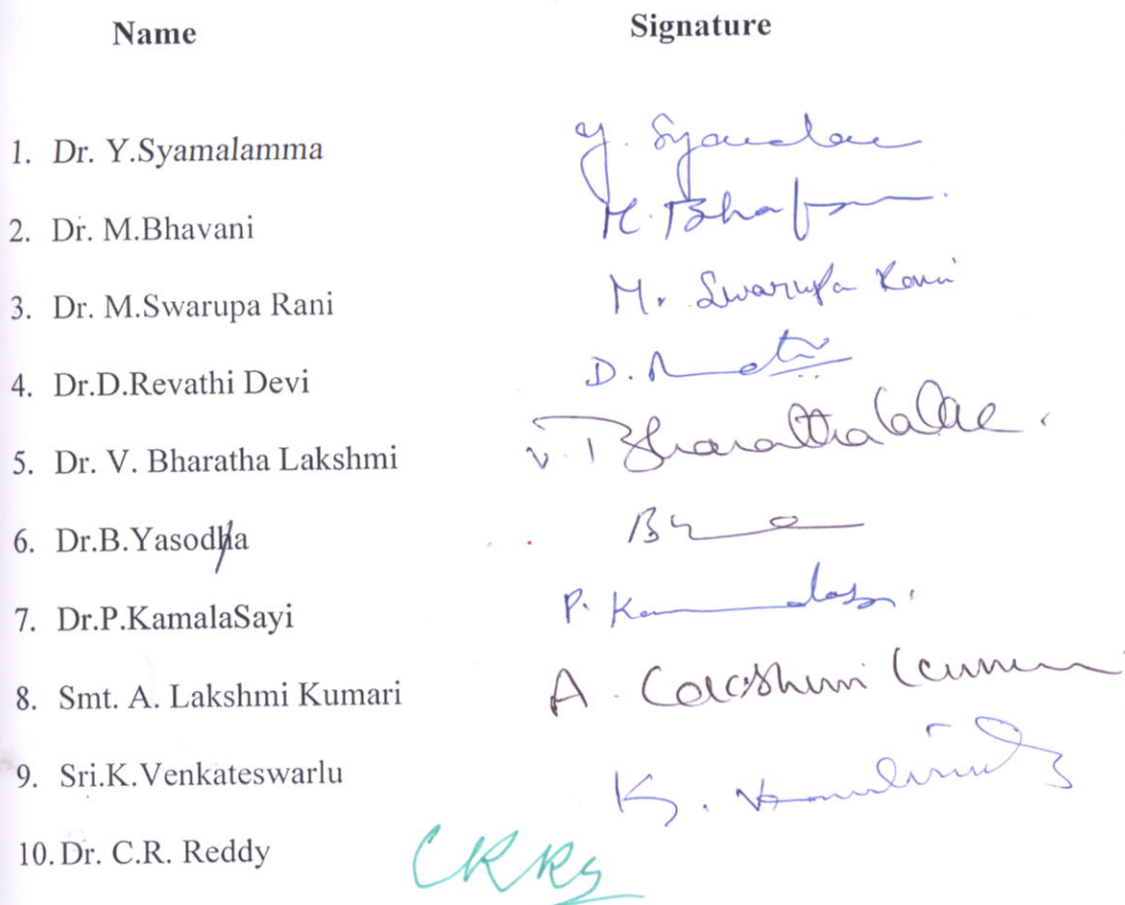 Name Signature
1. Dr. Y.Syamalamma Y. Syamala
2. Dr. M.Bhavani M. Bha
3. Dr. M.Swarupa Rani M. Swarupa Rani
4. Dr.D.Revathi Devi D.
5. Dr. V. Bharatha Lakshmi V. Bharatha
6. Dr.B.Yasodha
7. Dr.P.KamalaSayi P.
8. Smt. A. Lakshmi Kumari A. Lakshmi
9. Sri.K.Venkateswarlu K.
10. Dr. C.R. Reddy